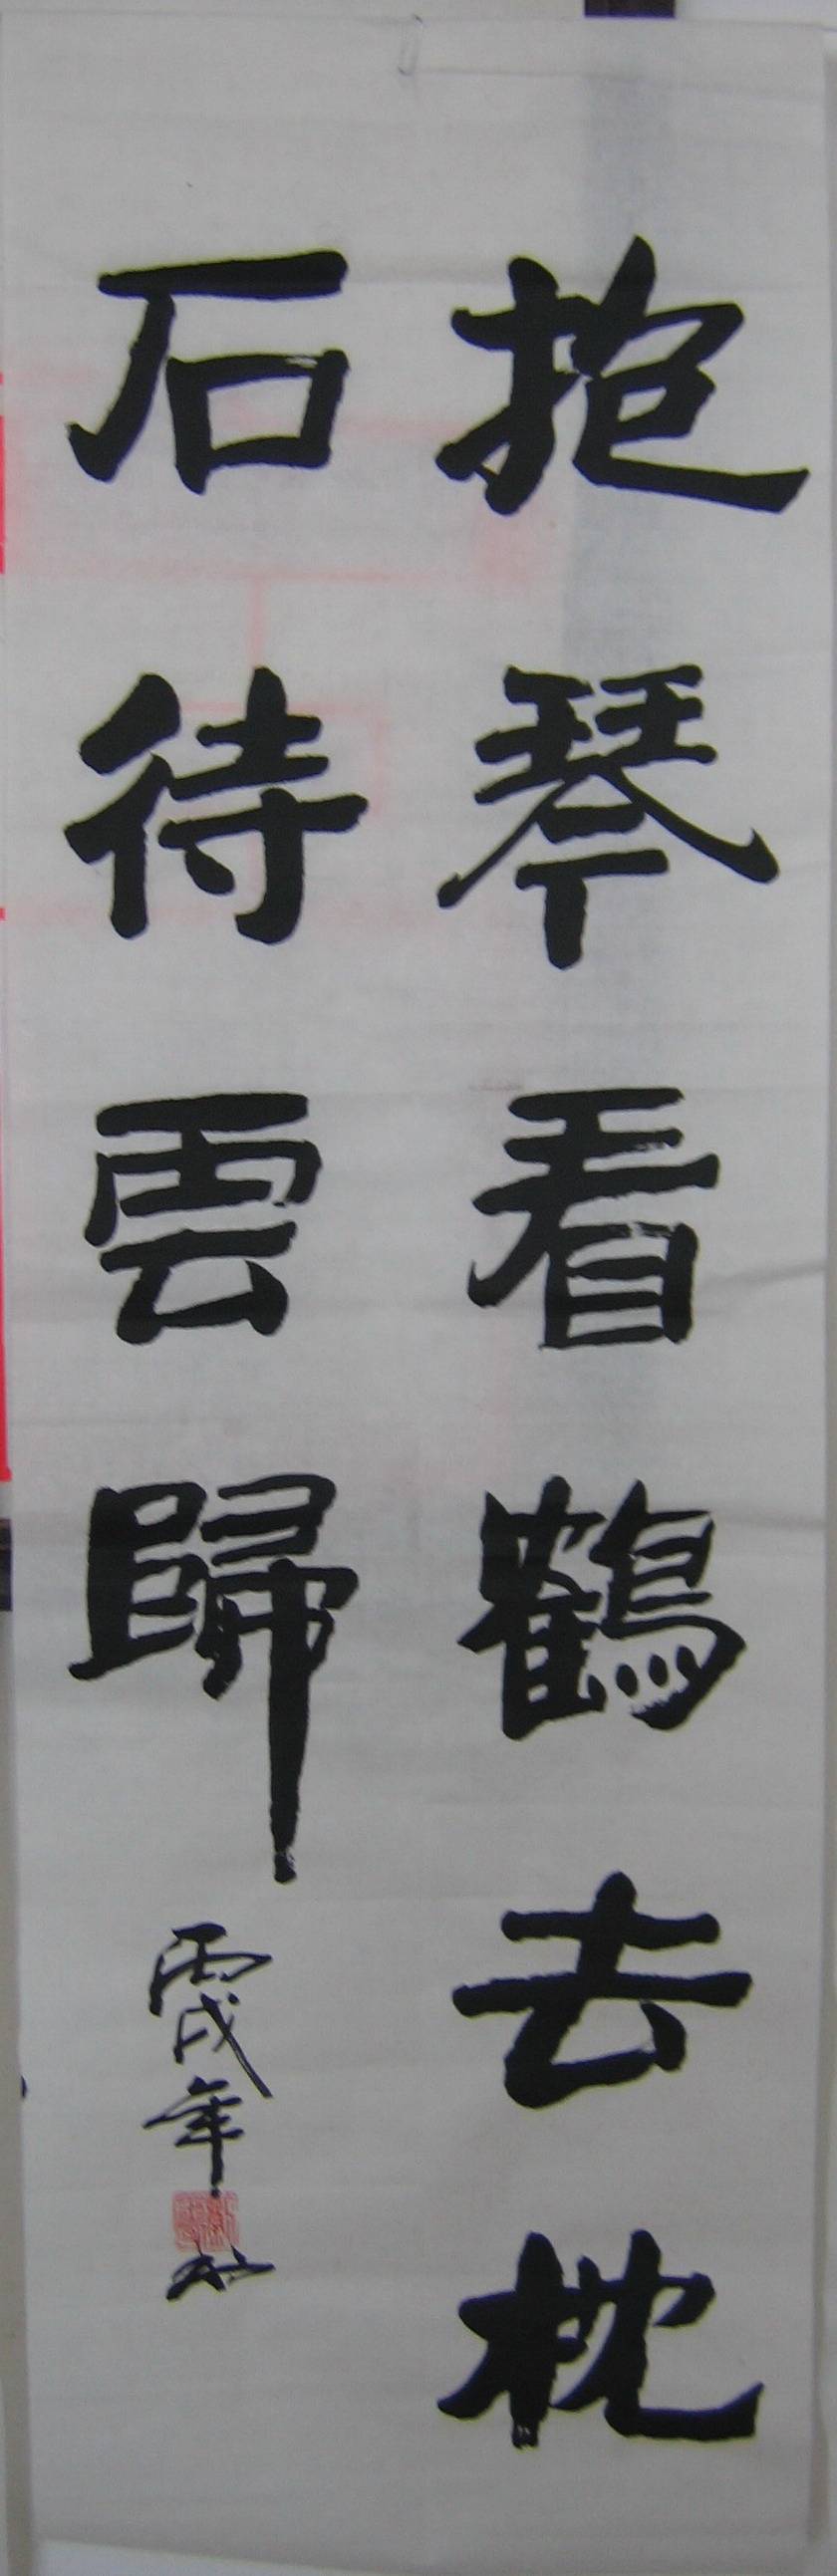 抱琴看鶴去枕
石待雲歸
丙戌年